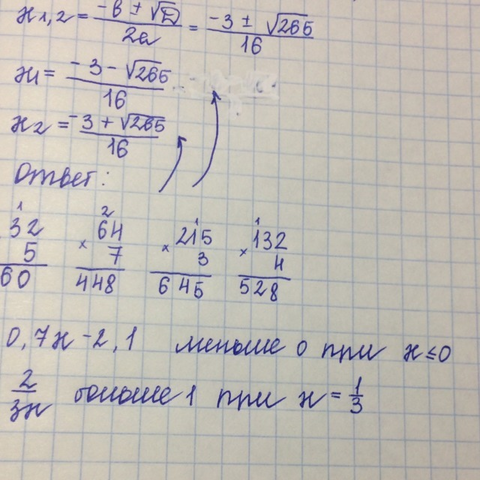 x1,2 = (-b ± √D)/2a = (-3 ± √265)/16
x1 = (-3 - √265)/16
x2 = (-3 + √265)/16
Ответ:
1 2 1 1
32 64 215 132
5 × 7 × 3 × 4
60 448 645 528
0,7x - 2,1 меньше 0 при x ≤ 0
2/3x больше 1 при x = 1/3